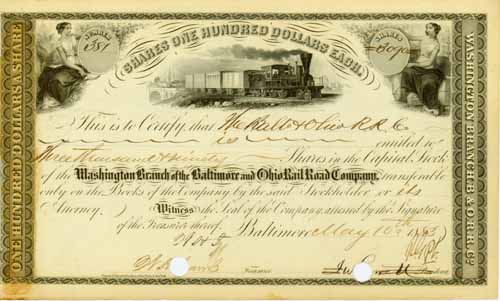 SHARES ONE HUNDRED DOLLARS EACH.
NUMBER
SHARES
ONE HUNDRED DOLLARS A SHARE
WASHINGTON BRANCH B. & O. R.R. Co.
This is to Certify, that The Balto & Ohio R.R. Co
is entitled to
Three thousand & ninety Shares in the Capital Stock
of the Washington Branch of the Baltimore and Ohio Rail Road Company, transferable
only on the Books of the Company by the said Stockholder or its
Attorney. Witness the Seal of the Company attested by the Signature
of the Treasurer thereof.
Baltimore May 10th
Treasurer